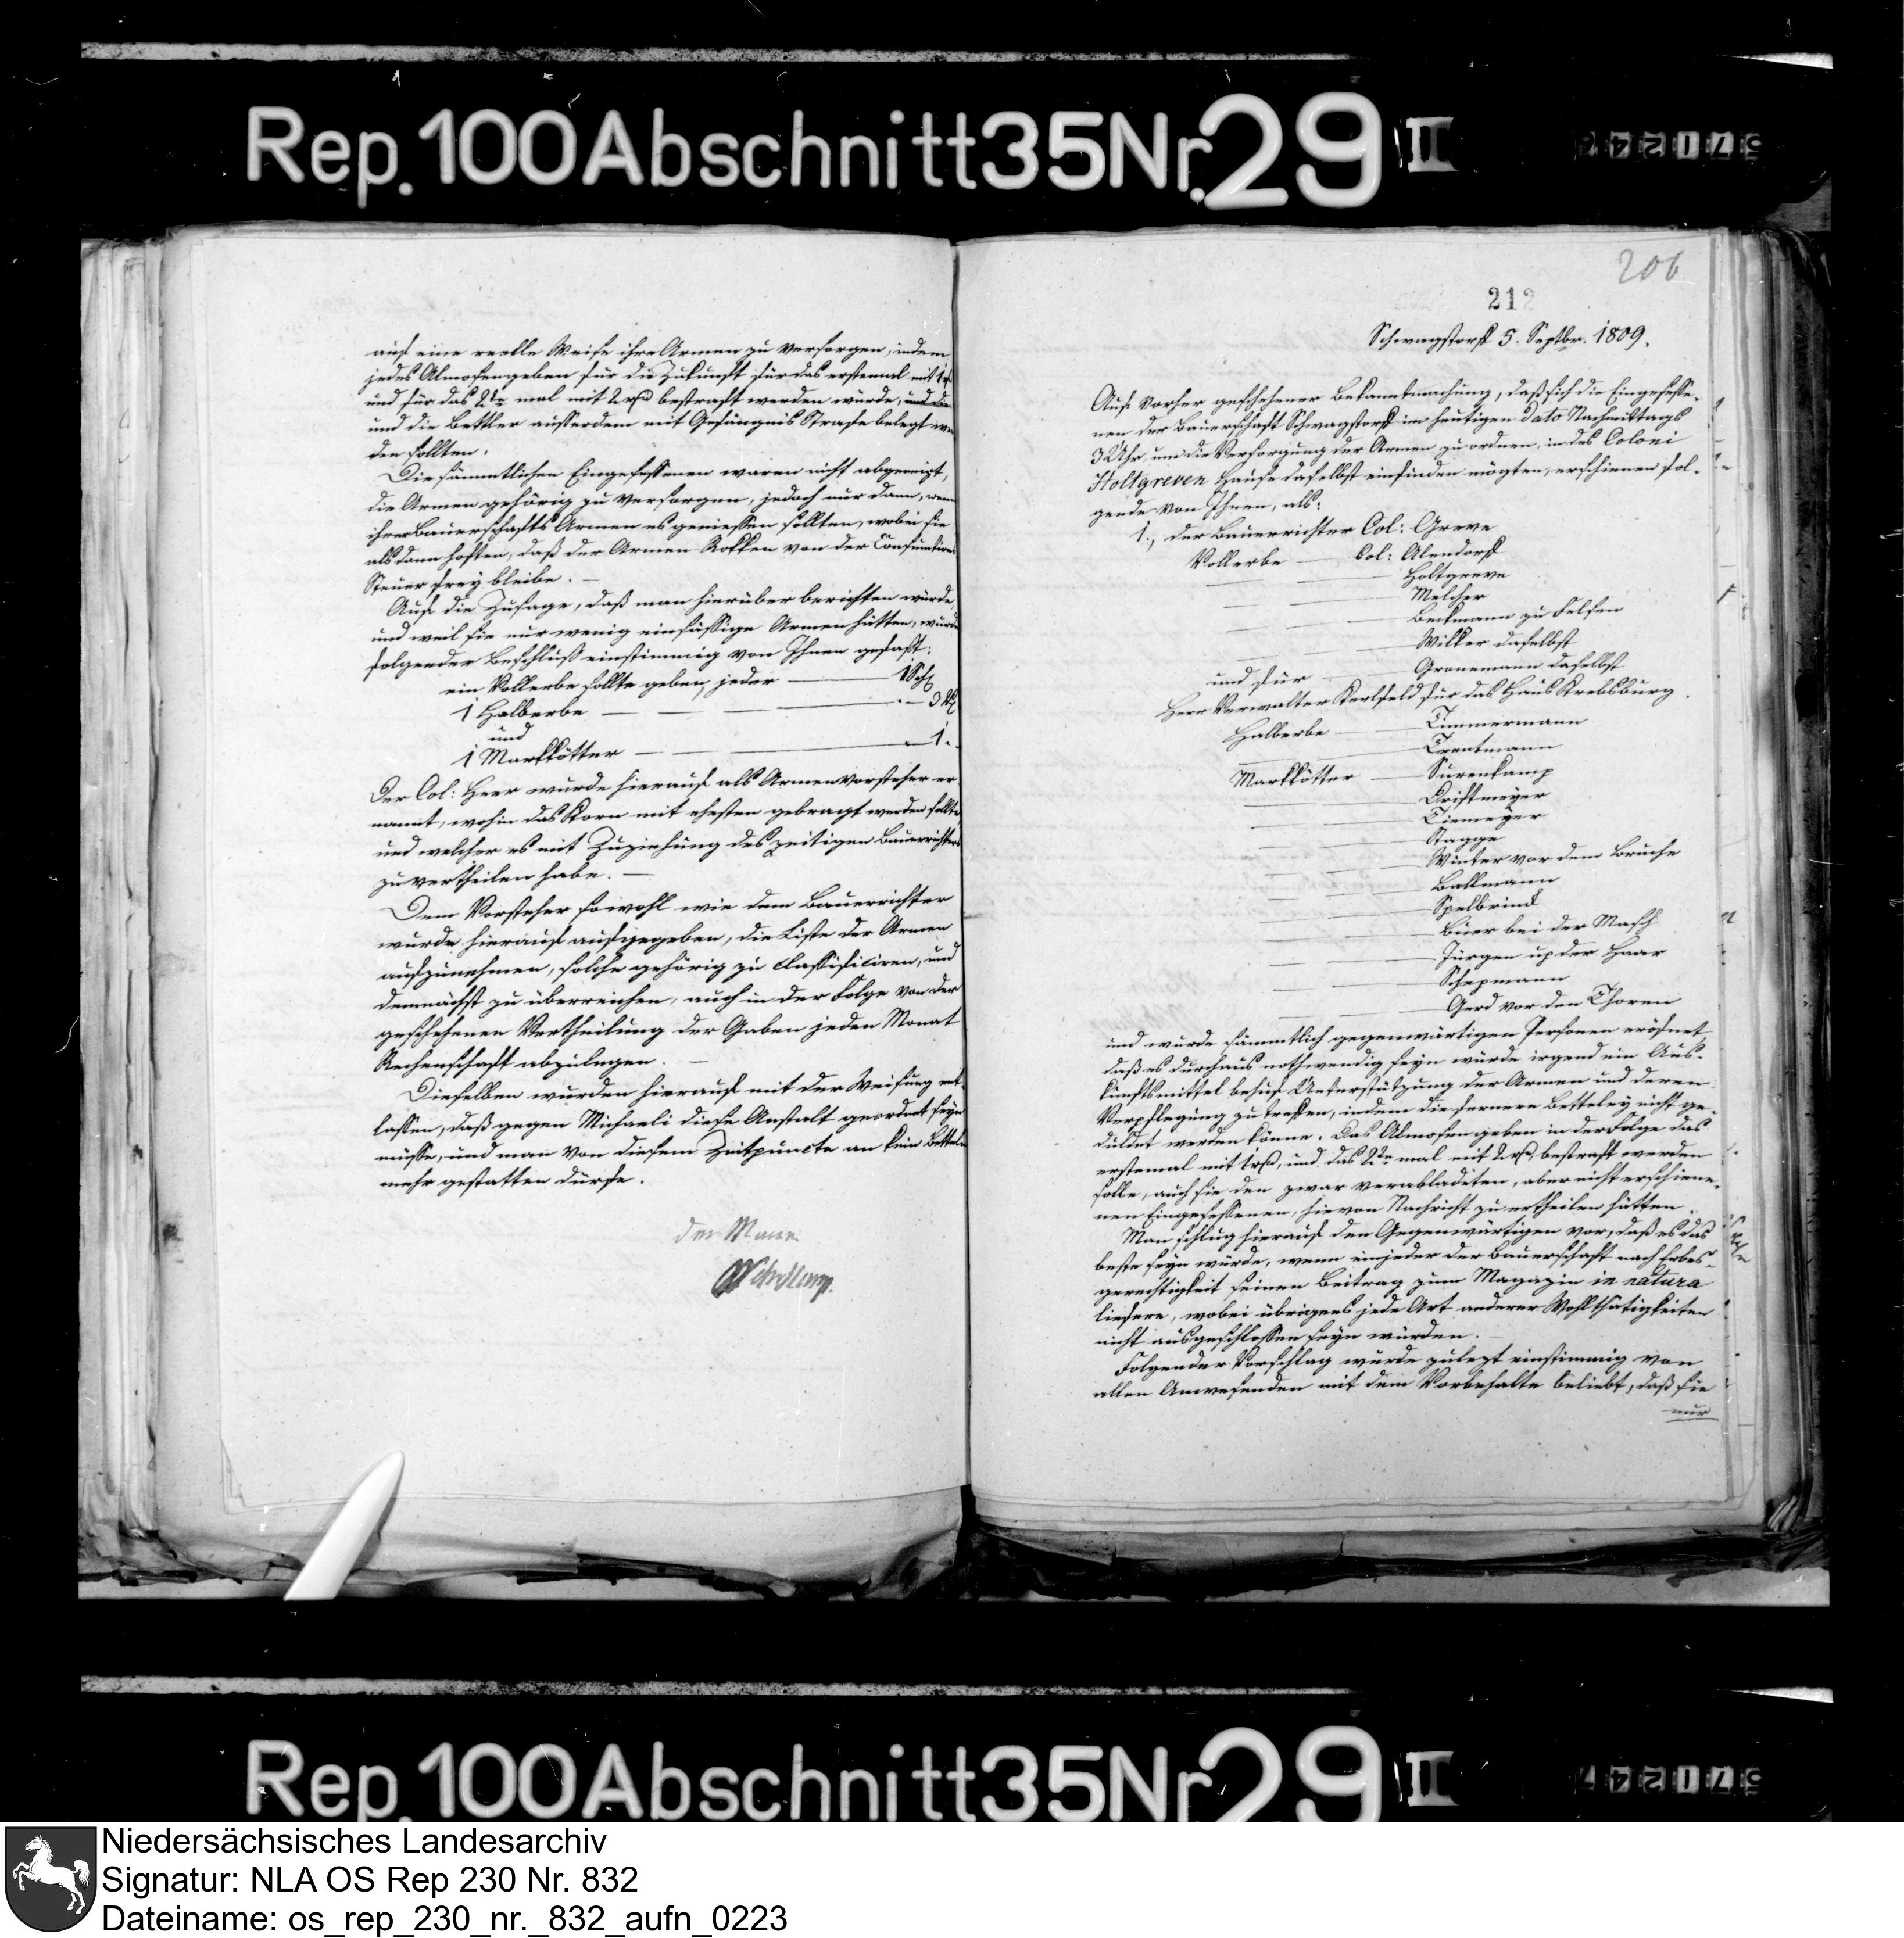 Rep. 100 Abschnitt 35 Nr. 29 II
auf eine reelle Weise ihre Armen zu versorgen, indem
jedes Almosengeben für die Zukunft für das erstemal mit 1 rß
und für das 2te mal mit 2 rß bestraft werden würde, und die
und die Bettler ausserdem mit Gefängnis Strafe belegt wer
den sollten.
Die sämmtlichen Eingesessenen waren nicht abgeneigt,
die Armen gehörig zu versorgen, jedoch nur dann, wenn
ihre Bauerschafts Armen es geniessen sollten, wobei sie
alsdann hoften, daß der Armen Rokken von der Consumtions
Steuer frey bleibe. —
Auf die Zusage, daß man hierüber berichten würde,
und weil sie nur wenig einsässige Armen hätten, wurde
folgender Beschluß einstimmig von Ihnen gefaßt:
ein Vollerbe sollte geben, jeder — 1 Schf
1 Halberbe — — 3 Vt
und
1 Markkötter — — 1.
Der Col: Heer wurde hierauf als Armenvorsteher er
nannt, wohin das Korn mit ehesten gebragt werden sollte,
und welcher es mit Zuziehung des zeitigen Bauerrichters
zu vertheilen habe. —
Dem Vorsteher sowohl wie dem Bauerrichter
wurde hierauf aufgegeben, die Liste der Armen
aufzunehmen, solche gehörig zu classificiren, und
demnächst zu überreichen, auch in der Folge von der
geschehenen Vertheilung der Gaben jeden Monat
Rechenschaft abzulegen. —
Dieselben wurden hierauf mit der Weisung ent
lassen, daß gegen Michaeli diese Anstalt geordnet seyn
müsse, und man von diesem Zeitpuncte an kein Betteln
mehr gestatten dürfe.
der Maire
206
212
Schwagstorf 5. Septbr. 1809.
Auf vorher geschehener Bekanntmachung, daß sich die Eingesesse-
nen der Bauerschaft Schwagstorf im heutigen dato Nachmittags
3 Uhr um die Versorgung der Armen zu ordnen, in des Coloni
Holtgreven Hause daselbst einfinden mögten, erschienen fol-
gende von Ihnen, als:
1., der Bauerrichter Col: Greve
Vollerbe — Col: Alendorf
— — Holtgreve
— — Melcher
— — Beckmann zu Felsen
— — Wilker daselbst
und für — Gronemann daselbst
Herr Verwalter Kerlfeld für das Haus Krebsburg.
Halberbe — Timmermann
— Trentmann
Markkötter — Surenkamp
— — Driftmeyer
— — Tiemeyer
— — Stagge
— — Winter vor dem Bruche
— — Ballmann
— — Spelbrink
— — Buer bei der Masch
— — Jürgen up der Haar
— — Schepmann
— — Gerd vor den Thoren
und wurde sämmtlich gegenwärtigen Personen eröfnet,
daß es durchaus nothwendig seyn würde irgend ein Aus-
kunftsmittel behuf Unterstützung der Armen und deren
Verpflegung zu treffen, indem die fernere Betteley nicht ge-
duldet werden könne. Das Almosengeben in der Folge das
erstemal mit 1 rß, und das 2te mal mit 2 rß, bestraft werden
solle, auch sie den zwar verabladeten, aber nicht erschiene-
nen Eingesessenen, hievon Nachricht zu ertheilen hätten.
Man schlug hierauf den Gegenwärtigen vor, daß es das
beste seyn würde, wenn ein jeder der Bauerschaft nach Erbes-
gerechtigkeit seinen Beitrag zum Magazin in natura
liefere, wobei übrigens jede Art anderer Wohlthätigkeiten
nicht ausgeschlossen seyn würden. —
Folgender Vorschlag wurde zulezt einstimmig von
allen Anwesenden mit dem Vorbehalte beliebt, daß sie
nur
Rep. 100 Abschnitt 35 Nr 29 II
Niedersächsisches Landesarchiv
Signatur: NLA OS Rep 230 Nr. 832
Dateiname: os_rep_230_nr._832_aufn_0223